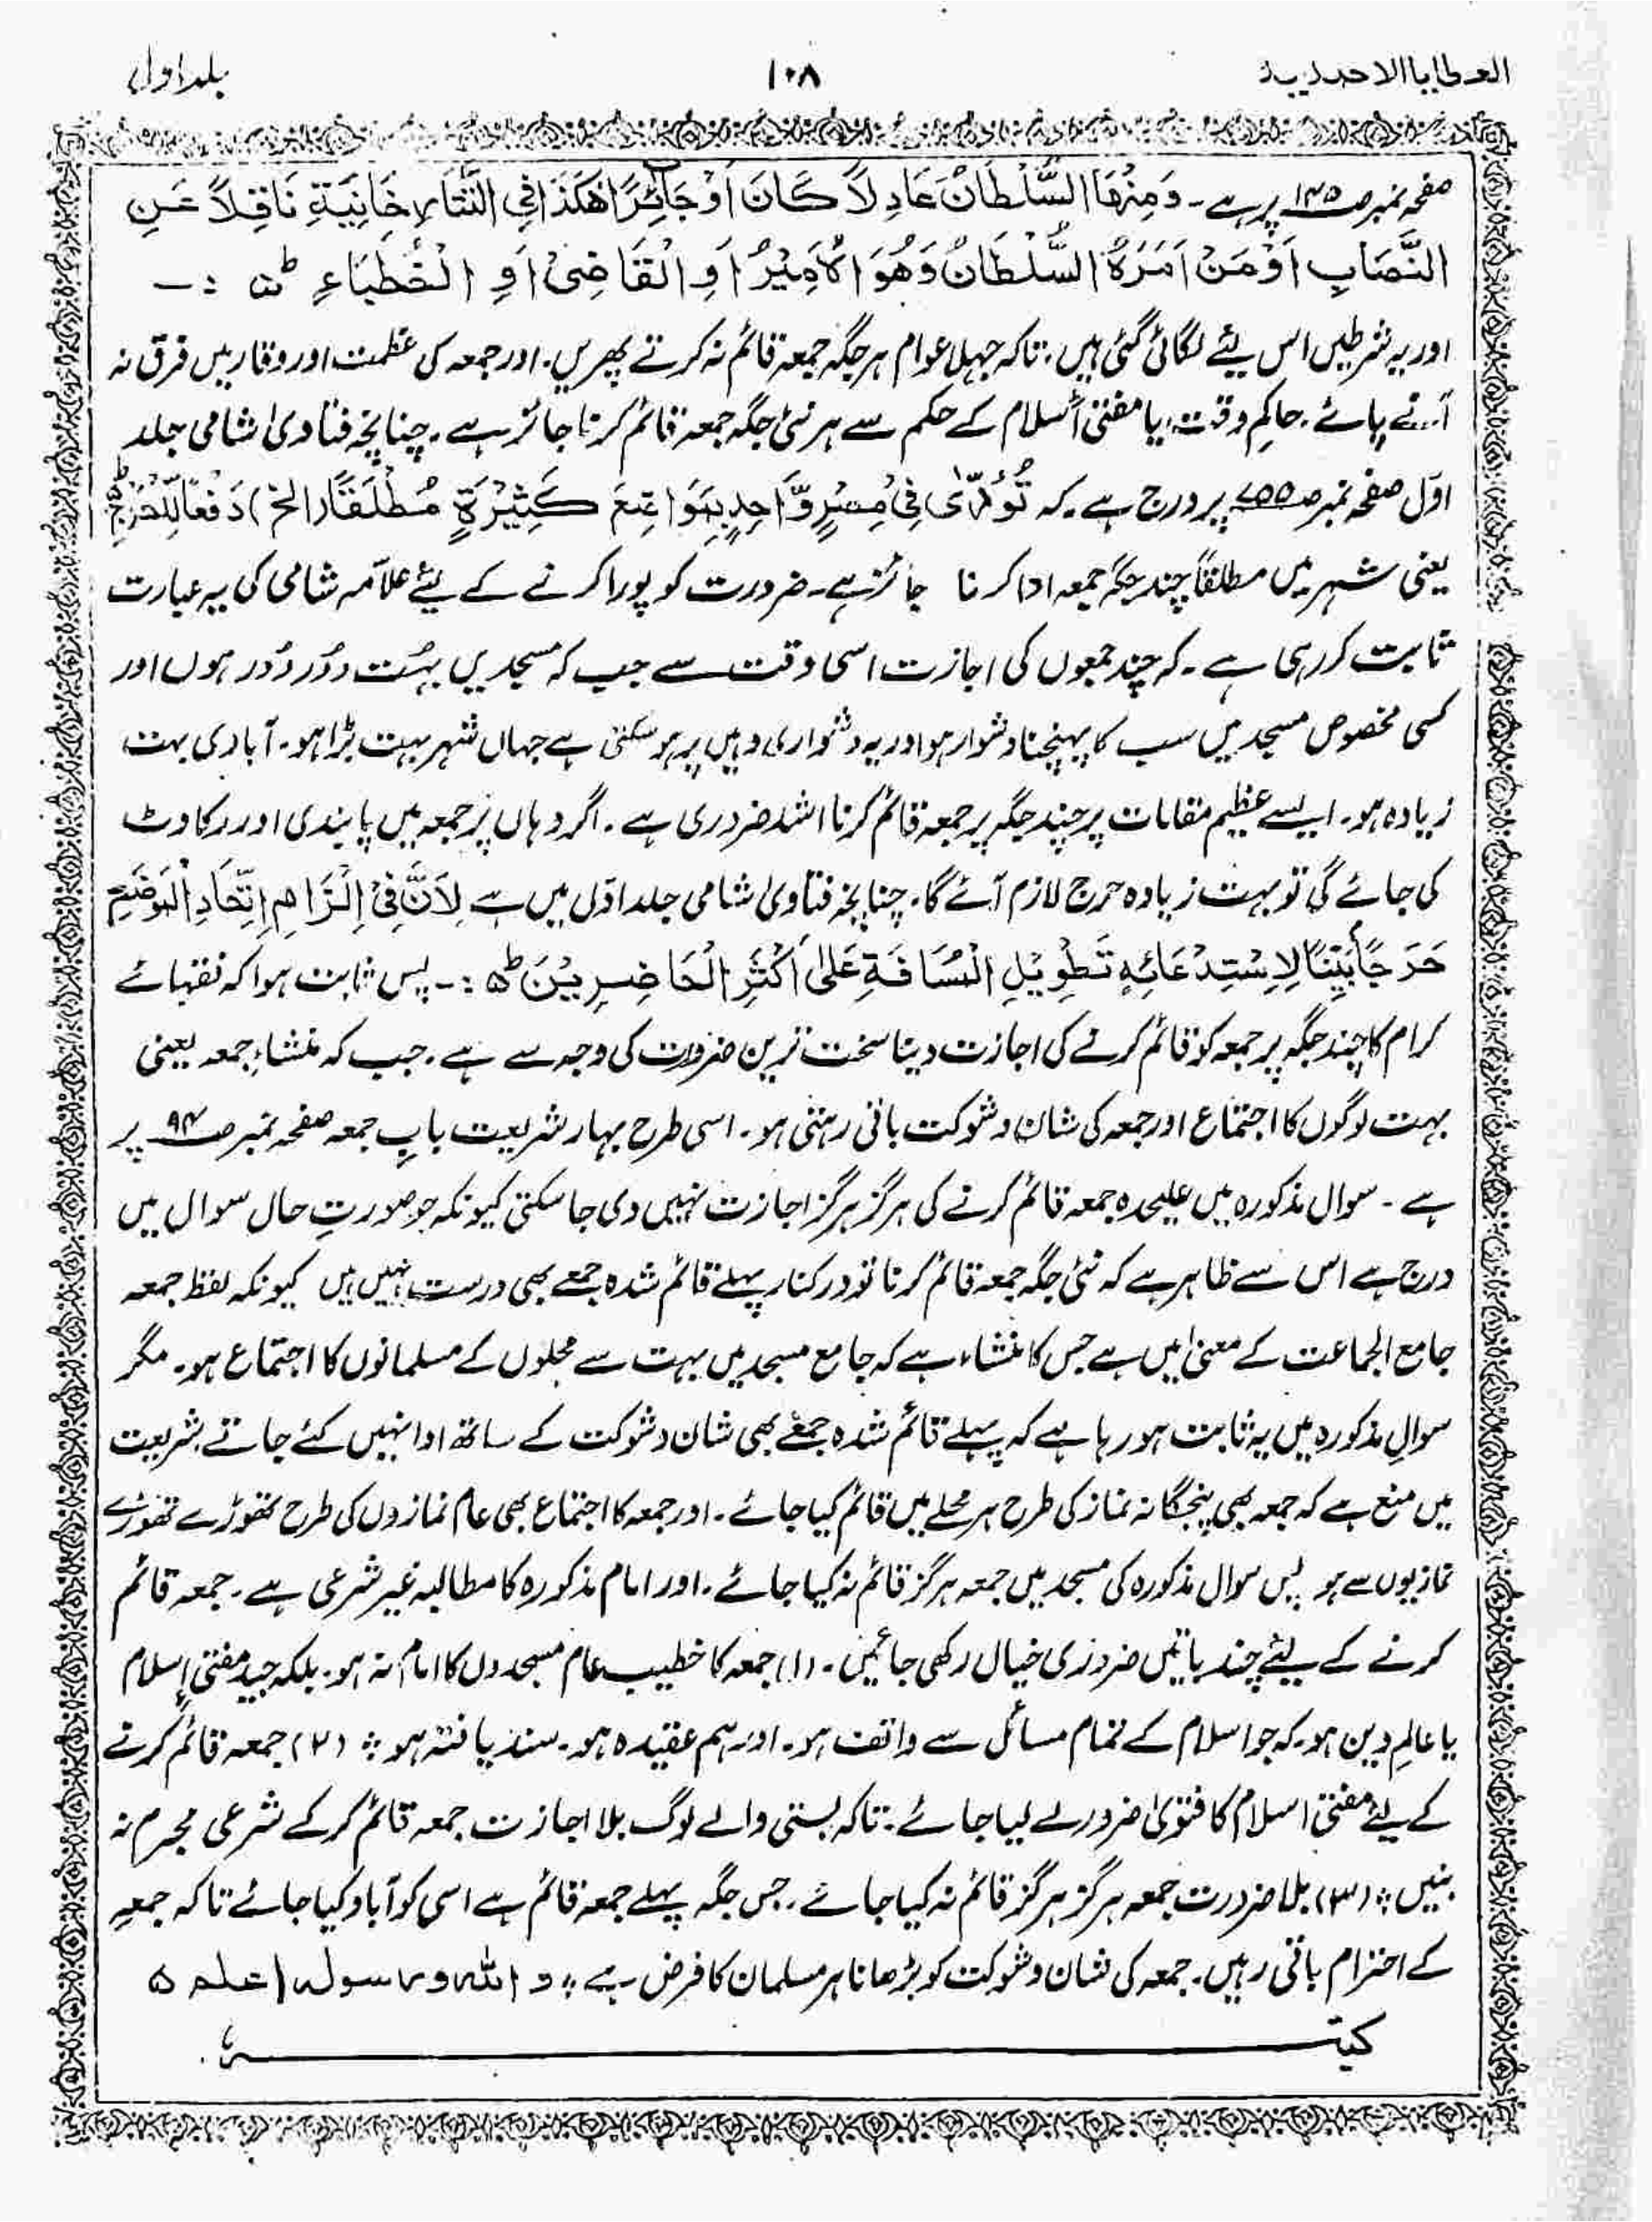 العطایا الاحمدیہ ۱۰۸ جلد اول
صفحہ نمبر صـ۱۴۵ پر ہے۔ وَمِنْهَا السُّلْطَانُ عَادِلًا كَانَ اَوْ جَائِرًا هٰكَذَا فِي التَّتَارِ خَانِيَةِ نَاقِلًا عَنِ
النِّصَابِ اَوْ مَنْ اَمَرَهُ السُّلْطَانُ وَهُوَ الْاَمِيْرُ اَوِ الْقَاضِيْ اَوِ الْخُطَبَاءِ ط ۵ :۔
اور یہ شرطیں اس لیئے لگائی گئی ہیں، تاکہ جہلا عوام ہر جگہ جمعہ قائم نہ کرتے پھریں۔ اور جمعہ کی عظمت اور وقار میں فرق نہ
آنے پائے۔ حاکمِ وقت، یا مفتیٔ اسلام کے حکم سے ہر نئی جگہ جمعہ قائم کرنا جائز ہے۔ چنانچہ فتاویٰ شامی جلد
اوّل صفحہ نمبر صـ۷۵۵ پر درج ہے۔ کہ تُؤَدّٰى فِيْ مِصْرٍ وَّاحِدٍ بِمَوَاضِعَ كَثِيْرَةٍ مُطْلَقًا (الخ) دَفْعًا لِّلْحَرَجِ ط
یعنی شہر میں مطلقاً چند جگہ جمعہ ادا کرنا جائز ہے۔ ضرورت کو پورا کرنے کے لیئے علاّمہ شامی کی یہ عبارت
ثابت کر رہی ہے۔ کہ چند جمعوں کی اجازت اسی وقت سے جب کہ مسجدیں بہُت دُور دُور ہوں اور
کسی مخصوص مسجد میں سب کا پہنچنا دشوار ہو اور یہ دشواری وہیں پر ہو سکتی ہے جہاں شہر بہت بڑا ہو۔ آبادی بہت
زیادہ ہو۔ ایسے عظیم مقامات پر چند جگہ پر جمعہ قائم کرنا اشد ضروری ہے۔ اگر وہاں پر جمعہ میں پابندی اور رکاوٹ
کی جائے گی تو بہت زیادہ حرج لازم آئے گا۔ چنانچہ فتاویٰ شامی جلد اوّل میں ہے لِاَنَّ فِيْ اِلْزَامِ اِتِّحَادِ الْمَوْضِعِ
حَرَجًا بَيِّنًا لِاِسْتِدْعَائِهٖ تَطْوِيْلِ الْمَسَافَةِ عَلٰى اَكْثَرِ الْحَاضِرِيْنَ ط ۵ :۔ پس ثابت ہوا کہ فقہائے
کرام کا چند جگہ پر جمعہ کو قائم کرنے کی اجازت دینا سخت ترین ضرورت کی وجہ سے ہے۔ جب کہ منشاءِ جمعہ یعنی
بہت لوگوں کا اجتماع اور جمعہ کی شان و شوکت باقی رہتی ہو۔ اسی طرح بہار شریعت بابِ جمعہ صفحہ نمبر صـ۹۴ پر
ہے۔ سوال مذکورہ میں علیحدہ جمعہ قائم کرنے کی ہرگز ہرگز اجازت نہیں دی جا سکتی کیونکہ جو صورتِ حال سوال میں
درج ہے اس سے ظاہر ہے کہ نئی جگہ جمعہ قائم کرنا تو درکنار پہلے قائم شدہ جمعے بھی درست نہیں ہیں کیونکہ لفظ جمعہ
جامع الجماعت کے معنیٰ میں ہے جس کا منشاء ہے کہ جامع مسجد میں بہت سے محلوں کے مسلمانوں کا اجتماع ہو۔ مگر
سوالِ مذکورہ میں یہ ثابت ہو رہا ہے کہ پہلے قائم شدہ جمعے بھی شان و شوکت کے ساتھ ادا نہیں کئے جاتے شریعت
میں منع ہے کہ جمعہ بھی پنجگانہ نماز کی طرح ہر محلے میں قائم کیا جائے۔ اور جمعہ کا اجتماع بھی عام نمازوں کی طرح تھوڑے تھوڑے
نمازیوں سے ہو پس سوال مذکورہ کی مسجد میں جمعہ ہرگز قائم نہ کیا جائے۔ اور امام مذکورہ کا مطالبہ غیر شرعی ہے۔ جمعہ قائم
کرنے کے لیئے چند باتیں ضروری خیال رکھی جائیں۔ (۱) جمعہ کا خطیب عام مسجدوں کا امام نہ ہو۔ بلکہ جید مفتیٔ اسلام
یا عالمِ دین ہو۔ کہ جو اسلام کے تمام مسائل سے واقف ہو۔ اور ہم عقیدہ ہو۔ سند یافتہ ہو ؞ (۲) جمعہ قائم کرنے
کے لیئے مفتیٔ اسلام کا فتویٰ ضرور لے لیا جائے، تاکہ بستی والے لوگ بلا اجازت جمعہ قائم کر کے شرعی مجرم نہ
بنیں ؞ (۳) بلا ضرورت جمعہ ہرگز ہرگز قائم نہ کیا جائے۔ جس جگہ پہلے جمعہ قائم ہے اسی کو آباد کیا جائے تاکہ جمعے
کے احترام باقی رہیں۔ جمعہ کی شان و شوکت کو بڑھانا ہر مسلمان کا فرض ہے ؞ و اللہ ورسولہ اعلم ۵
کتبـــــــہ